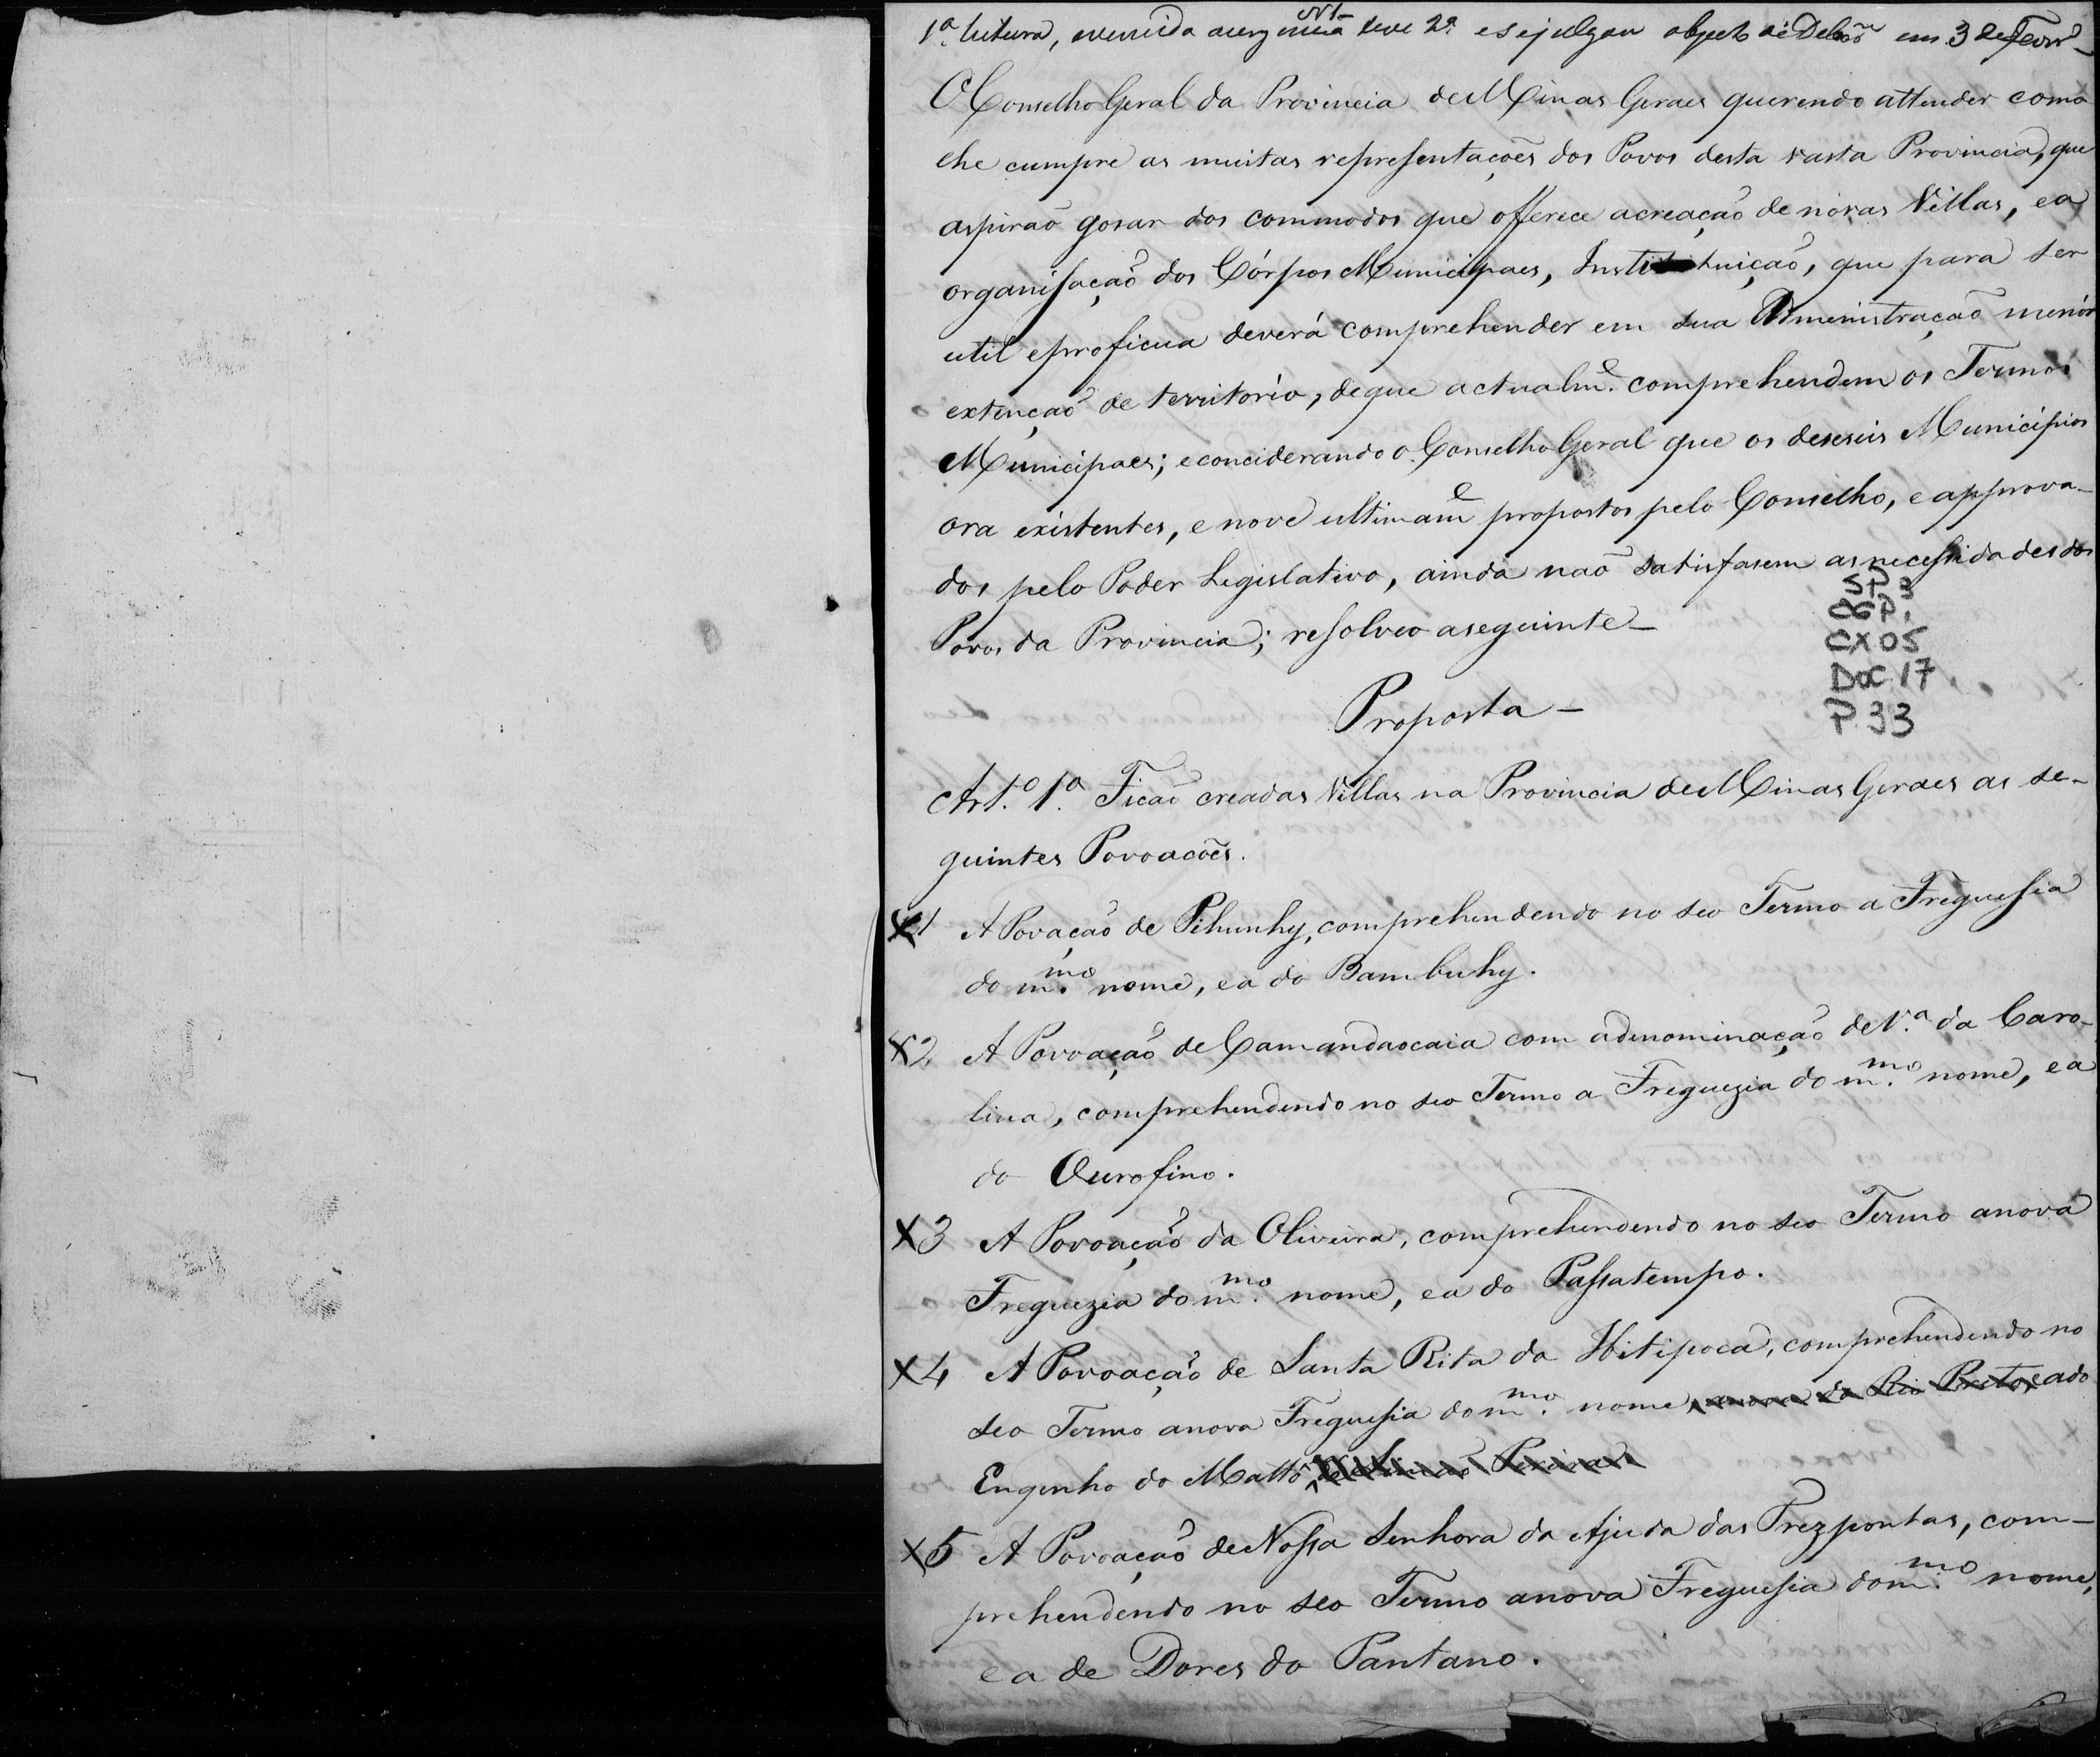 1ª leitura, vencida a urgencia teve 2ª e se julgou objecto de Delibão em 3 de Fevrº
O Conselho Geral da Provincia de Minas Geraes querendo attender como
lhe cumpre as muitas representaçoẽs dos Povos desta vasta Provincia, que
aspiraõ gosar dos commodos que offerece a creaçaõ de nóvas Villas, e a
organisaçaõ dos Córpos Municipaes, Instituiçaõ, que para ser
util e proficua deverá comprehender em sua Administraçaõ menór
extençaõ de territorio, de que actualmᵉ. comprehendem os Termos
Municipaes; e conciderando o Conselho Geral que os deseseis Municipios
ora existentes, e nove ultimamᵉ propostos pelo Conselho, e approva-
dos pelo Poder Legislativo, ainda naõ satisfasem as necessidades dos
Povos da Provincia; resolveo a seguinte_
SP 3
CGP1
CX 05
DOC.17
P. 33
Proposta -
Art.º 1.º Ficaõ creadas Villas na Provincia de Minas Geraes as se-
guintes Povoacoẽs.
X1 A Povaçaõ de Pihunhy, comprehendendo no seo Termo a Freguesia
do m.mo nome, e a do Bambuhy.
X2 A Povoaçaõ de Camandaocaia com a denominaçaõ de V.ª da Caro-
lina, comprehendendo no seo Termo a Freguezia do m.mo nome, e a
do Ourofino.
X3 A Povoaçaõ da Oliveira, comprehendendo no seo Termo a nova
Freguezia do m.mo nome, e a do Passatempo.
X4 A Povoaçaõ de Santa Rita da Ibitipoca, comprehendendo no
seo Termo a nova Freguesia do m.mo nome, a nova do Rio Preto, e a do
Engenho do Matto
X5 A Povoaçaõ de Nossa Senhora da Ajuda das Trezpontas, com-
prehendendo no seo Termo a nova Freguesia do m.mo nome,
e a de Dores do Pantano.